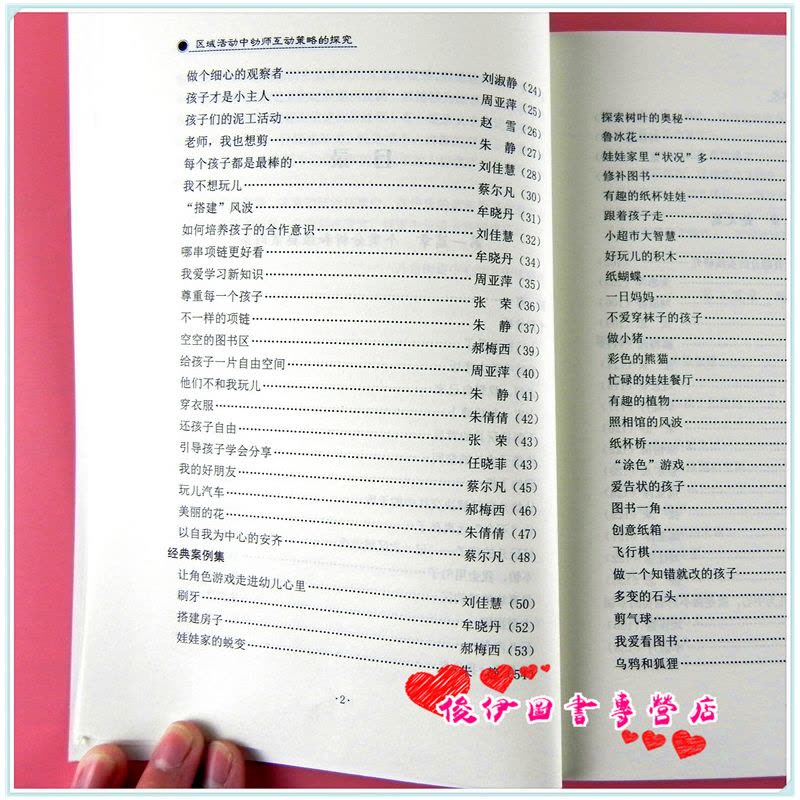 区域活动中幼师互动策略的探究
做个细心的观察者……刘淑静（24）
孩子才是小主人……周亚萍（25）
孩子们的泥工活动……赵　雪（26）
老师，我也想剪……朱　静（27）
每个孩子都是最棒的……刘佳慧（28）
我不想玩儿……蔡尔凡（30）
“搭建”风波……牟晓丹（31）
如何培养孩子的合作意识……刘佳慧（32）
哪串项链更好看……牟晓丹（34）
我爱学习新知识……周亚萍（35）
尊重每一个孩子……张　荣（36）
不一样的项链……朱　静（37）
空空的图书区……郝梅西（39）
给孩子一片自由空间……周亚萍（40）
他们不和我玩儿……朱　静（41）
穿衣服……朱倩倩（42）
还孩子自由……张　荣（43）
引导孩子学会分享……任晓菲（43）
我的好朋友……蔡尔凡（45）
玩儿汽车……郝梅西（46）
美丽的花……朱倩倩（47）
以自我为中心的安齐……蔡尔凡（48）
经典案例集
让角色游戏走进幼儿心里……刘佳慧（50）
刷牙……牟晓丹（52）
搭建房子……郝梅西（53）
娃娃家的蜕变……朱（54）
·2·
探索树叶的奥秘
鲁冰花
娃娃家里“状况”多
修补图书
有趣的纸杯娃娃
跟着孩子走
小超市大智慧
好玩儿的积木
纸蝴蝶
一日妈妈
不爱穿袜子的孩子
做小猪
彩色的熊猫
忙碌的娃娃餐厅
有趣的植物
照相馆的风波
纸杯桥
“涂色”游戏
爱告状的孩子
图书一角
创意纸箱
飞行棋
做一个知错就改的孩子
多变的石头
剪气球
我爱看图书
乌鸦和狐狸
俊伊图書專營店